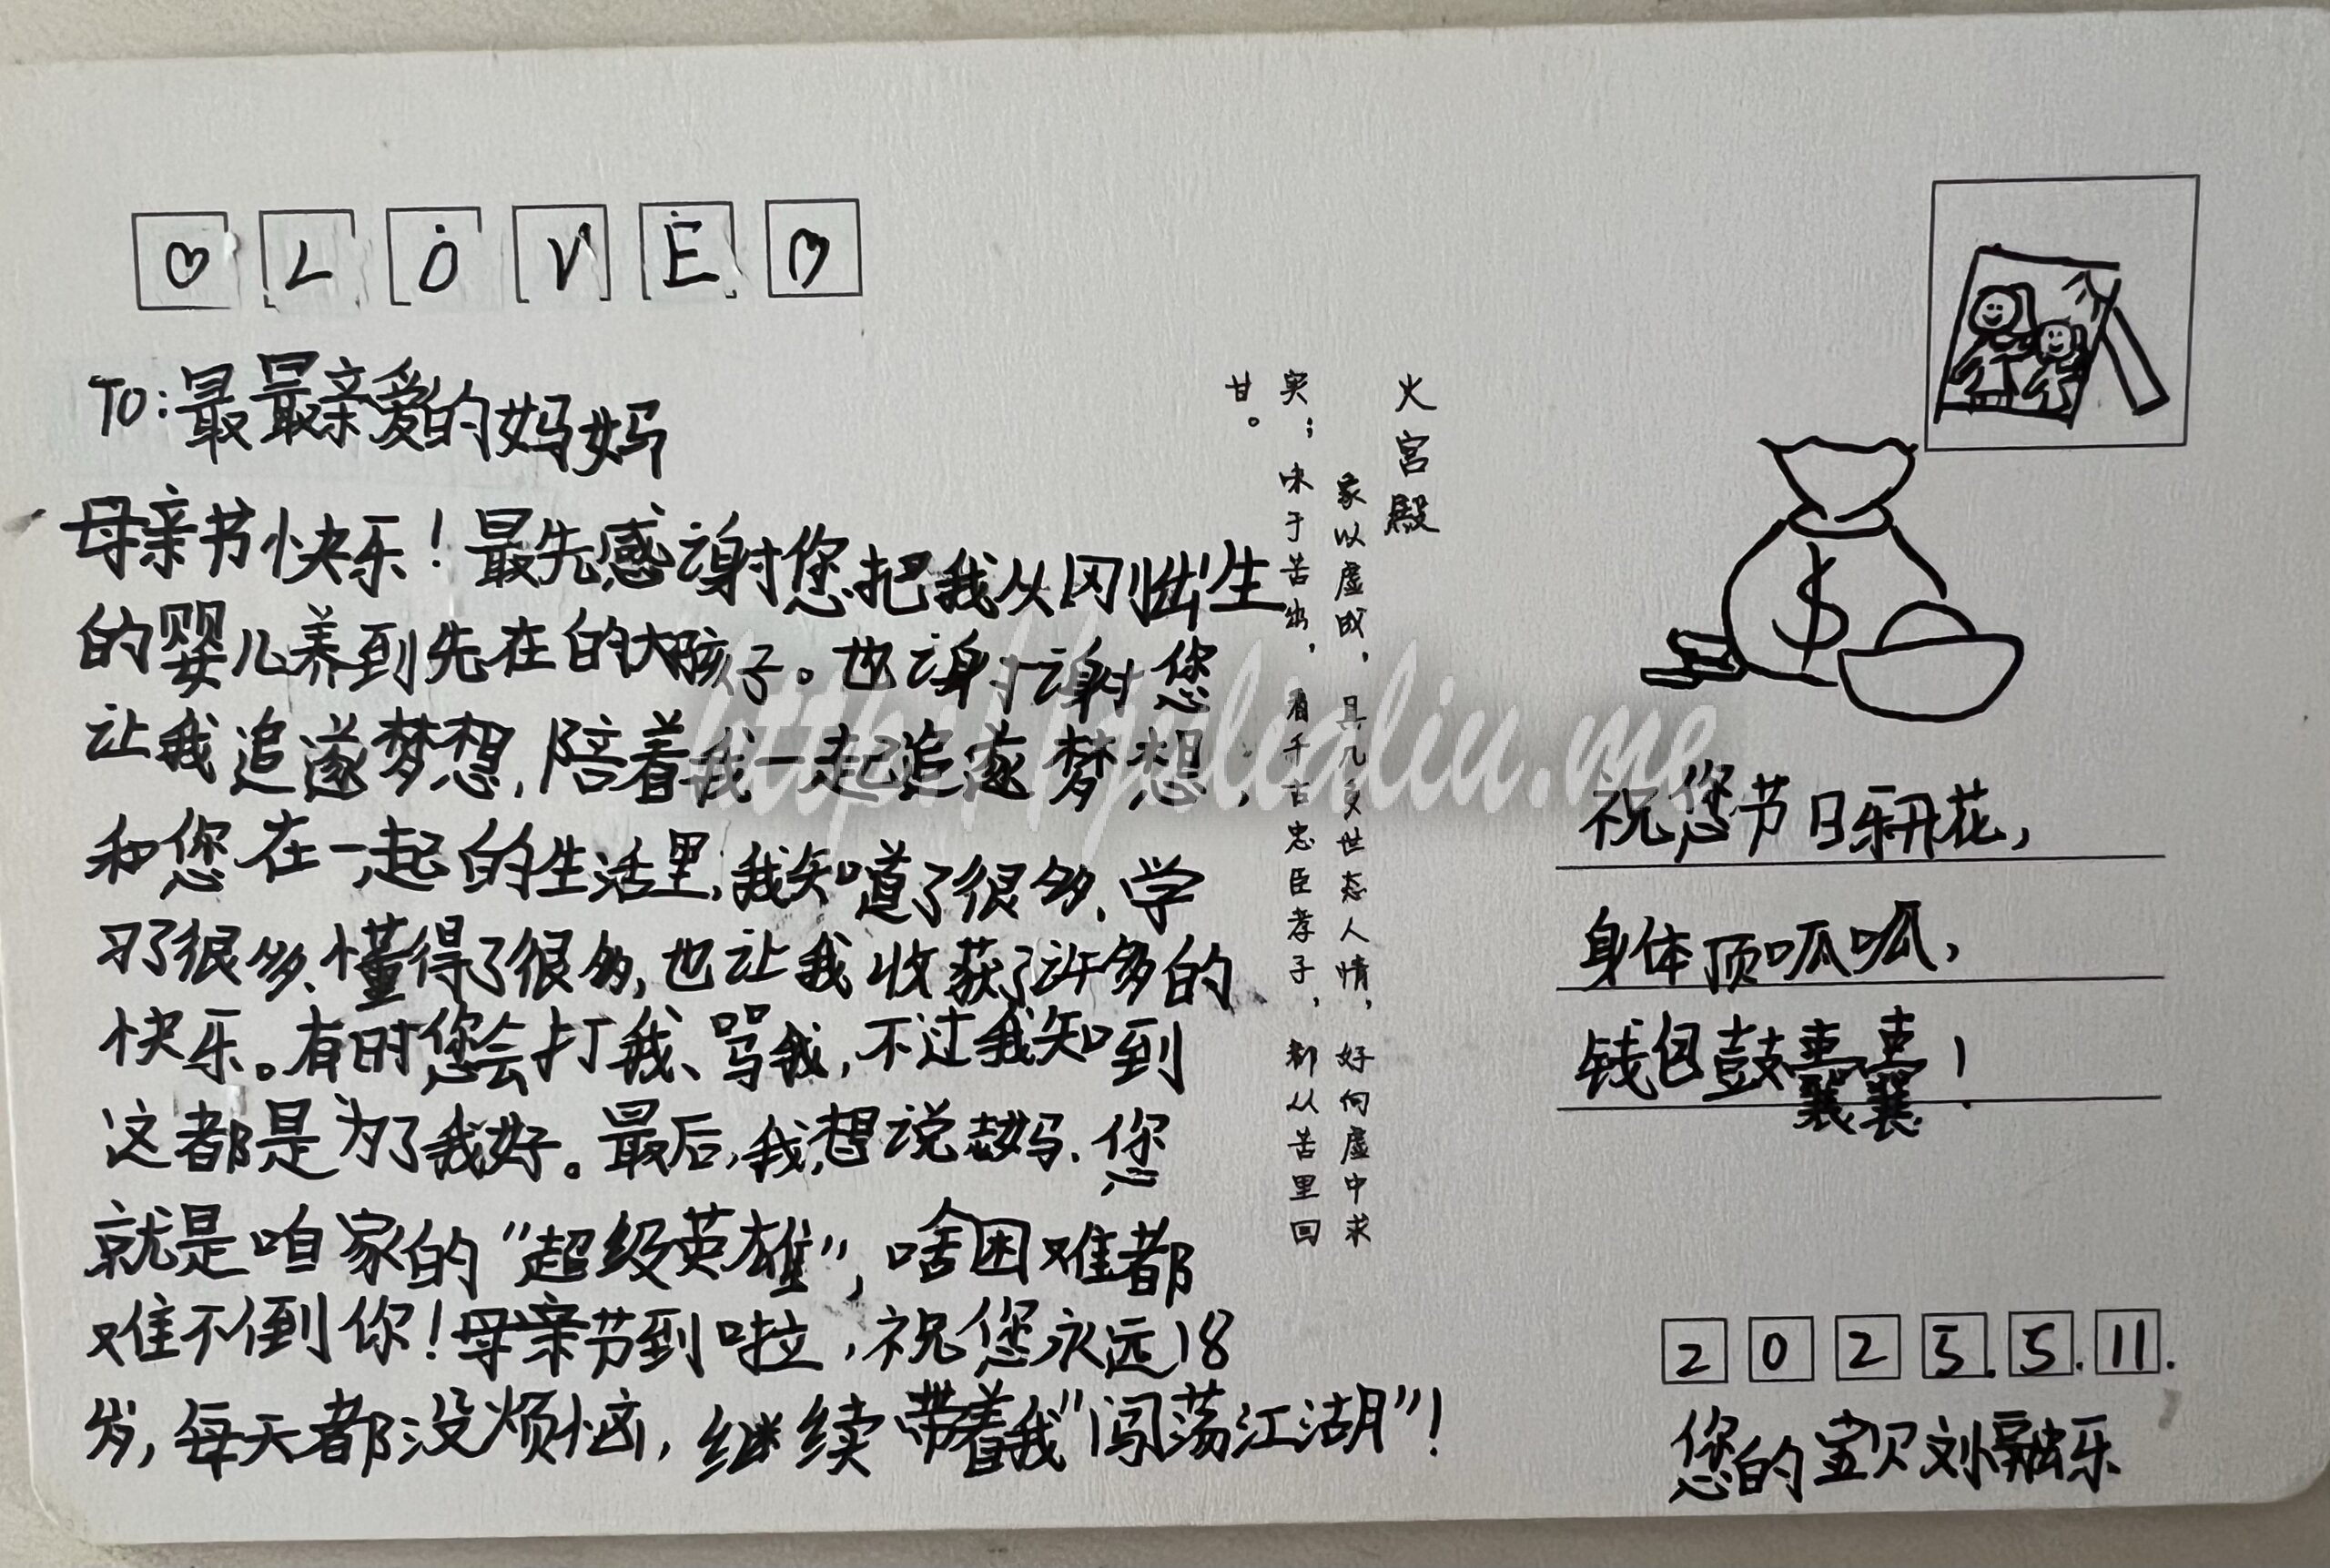 ♡ L O V E ♡
To:最最亲爱的妈妈
母亲节快乐！最先感谢您把我从刚出生
的婴儿养到先在的大孩子。也谢谢您
让我追逐梦想,陪着我一起追逐梦想,
和您在一起的生活里,我知道了很多、学
习了很多、懂得了很多,也让我收获了许多的
快乐。有时您会打我、骂我,不过我知到
这都是为了我好。最后,我想说妈、您
就是咱家的"超级英雄",啥困难都
难不倒你！母亲节到啦,祝您永远18
岁,每天都没烦恼,继续带着我"闯荡江湖"！
火宫殿
象以虚成，具几多世态人情，好向虚中求
实；味于苦出，看千古忠臣孝子，都从苦里回
甘。
$
祝您节日乐开花,
身体顶呱呱,
钱包鼓囊囊！
2025.5.11.
您的宝贝刘融乐
http://yulialiu.me